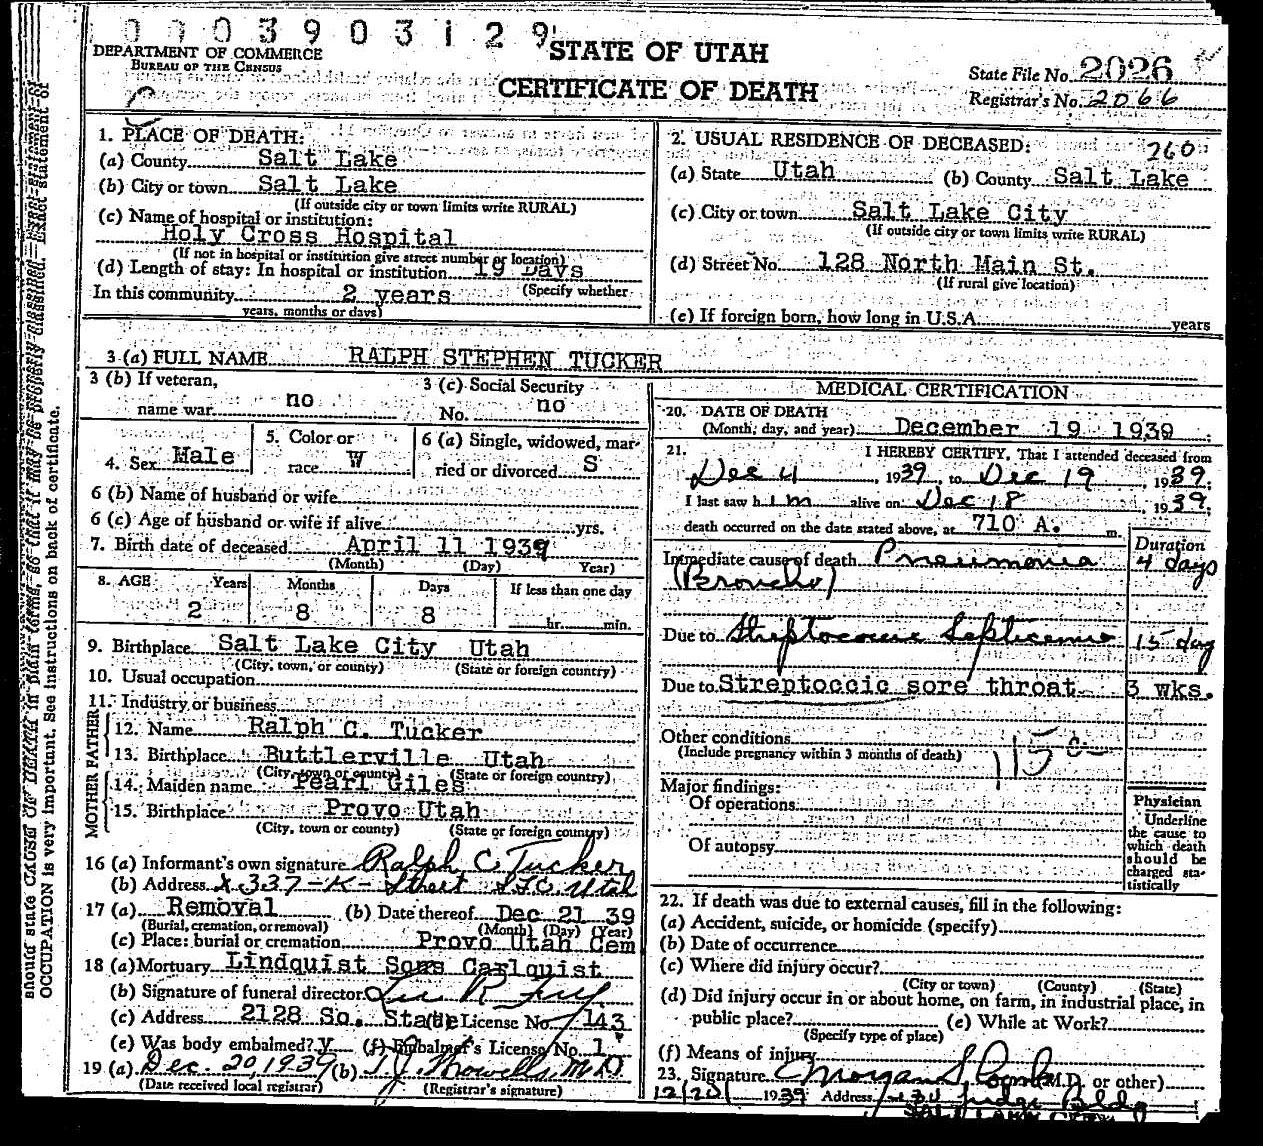 0003903129
DEPARTMENT OF COMMERCE
BUREAU OF THE CENSUS
STATE OF UTAH
CERTIFICATE OF DEATH
State File No. 2026
Registrar's No. 2066
1. PLACE OF DEATH:
(a) County Salt Lake
(b) City or town Salt Lake
(If outside city or town limits write RURAL)
(c) Name of hospital or institution:
Holy Cross Hospital
(If not in hospital or institution give street number or location)
(d) Length of stay: In hospital or institution 19 Days
In this community 2 years (Specify whether
years, months or days)
2. USUAL RESIDENCE OF DECEASED: 260
(a) State Utah (b) County Salt Lake
(c) City or town Salt Lake City
(If outside city or town limits write RURAL)
(d) Street No. 128 North Main St.
(If rural give location)
(e) If foreign born, how long in U.S.A. years
3 (a) FULL NAME RALPH STEPHEN TUCKER
3 (b) If veteran,
name war no
3 (c) Social Security
No. no
4. Sex Male
5. Color or
race W
6 (a) Single, widowed, mar-
ried or divorced S
6 (b) Name of husband or wife
6 (c) Age of husband or wife if alive yrs.
7. Birth date of deceased April 11 1939
(Month) (Day) Year)
8. AGE Years Months Days If less than one day
2 8 8 hr. min.
9. Birthplace Salt Lake City Utah
(City, town, or county) (State or foreign country)
10. Usual occupation
11. Industry or business
FATHER
12. Name Ralph C. Tucker
13. Birthplace Buttlerville Utah
(City, town or county) (State or foreign country)
MOTHER
14. Maiden name Pearl Giles
15. Birthplace Provo Utah
(City, town or county) (State or foreign country)
16 (a) Informant's own signature Ralph C. Tucker
(b) Address 337-K-Street S.L.C. Utah
17 (a) Removal (b) Date thereof Dec 21 39
(Burial, cremation, or removal) (Month) (Day) (Year)
(c) Place: burial or cremation Provo Utah Cem
18 (a) Mortuary Lindquist Sons Carlquist
(b) Signature of funeral director
(c) Address 2128 So. State (d) License No. 143
(e) Was body embalmed? y (f) Embalmer's License No. 1
19 (a) Dec. 20, 1939 (b) M.D.
(Date received local registrar) (Registrar's signature)
MEDICAL CERTIFICATION
20. DATE OF DEATH
(Month, day, and year) December 19 1939
21. I HEREBY CERTIFY, That I attended deceased from
Dec 4, 1939, to Dec 19, 1939;
I last saw h im alive on Dec 18, 1939;
death occurred on the date stated above, at 710 A. m.
Duration
Immediate cause of death Pneumonia 4 days
(Broncho)
Due to Streptococcic Septicemia 15 day
Due to Streptoccic sore throat 3 wks.
Other conditions
(Include pregnancy within 3 months of death)
Major findings:
Of operations
Of autopsy
Physician
Underline
the cause to
which death
should be
charged sta-
tistically
22. If death was due to external causes, fill in the following:
(a) Accident, suicide, or homicide (specify)
(b) Date of occurrence
(c) Where did injury occur?
(City or town) (County) (State)
(d) Did injury occur in or about home, on farm, in industrial place, in
public place? (e) While at Work?
(Specify type of place)
(f) Means of injury
23. Signature Morgan S. Coombs (M.D. or other)
12/20/ 1939 Address Judge Bldg
SALT LAKE CITY
should state CAUSE OF DEATH in plain terms, so that it may be properly classified. Exact statement of
OCCUPATION is very important. See instructions on back of certificate.